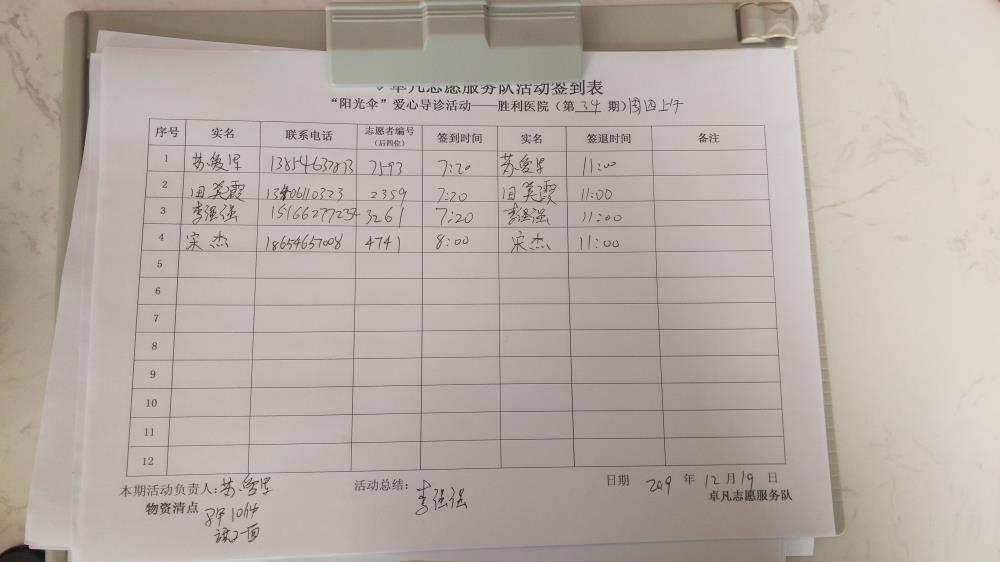 卓凡志愿服务队活动签到表
“阳光伞”爱心导诊活动——胜利医院(第 34 期)周四上午
序号 实名 联系电话 志愿者编号(后四位) 签到时间 实名 签退时间 备注
1 苏爱军 7593 7:20 苏爱军 11:00
2 田美霞 2359 7:20 田美霞 11:00
3 李强强 3261 7:20 李强强 11:00
4 宋杰 18654657008 4741 8:00 宋杰 11:00
5
6
7
8
9
10
11
12
本期活动负责人: 活动总结: 李强强 日期 2019 年 12 月 19 日
物资清点 卓凡志愿服务队
10件
旗一面